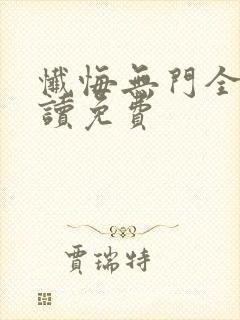 懺悔無門全
讀免費
賈瑞特